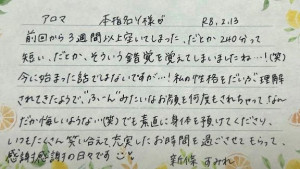 アロマ 本指名Y様が R8.2.13
前回から3週間以上空いてしまった、だとか240分って
短い、だとか、そういう錯覚を覚えてしまいましたね…!(笑)
今に始まった話ではないですが…!私の性格をだいぶ理解
されてきたようで、“ふ〜ん”みたいなお顔を何度もされちゃってなん
だか悔しいような…(笑)でも素直に身体を預けてくださり
いつもたくさん笑い合えて充実したお時間を過ごさせてもらって、
感謝感謝の日々です
新條 すみれ